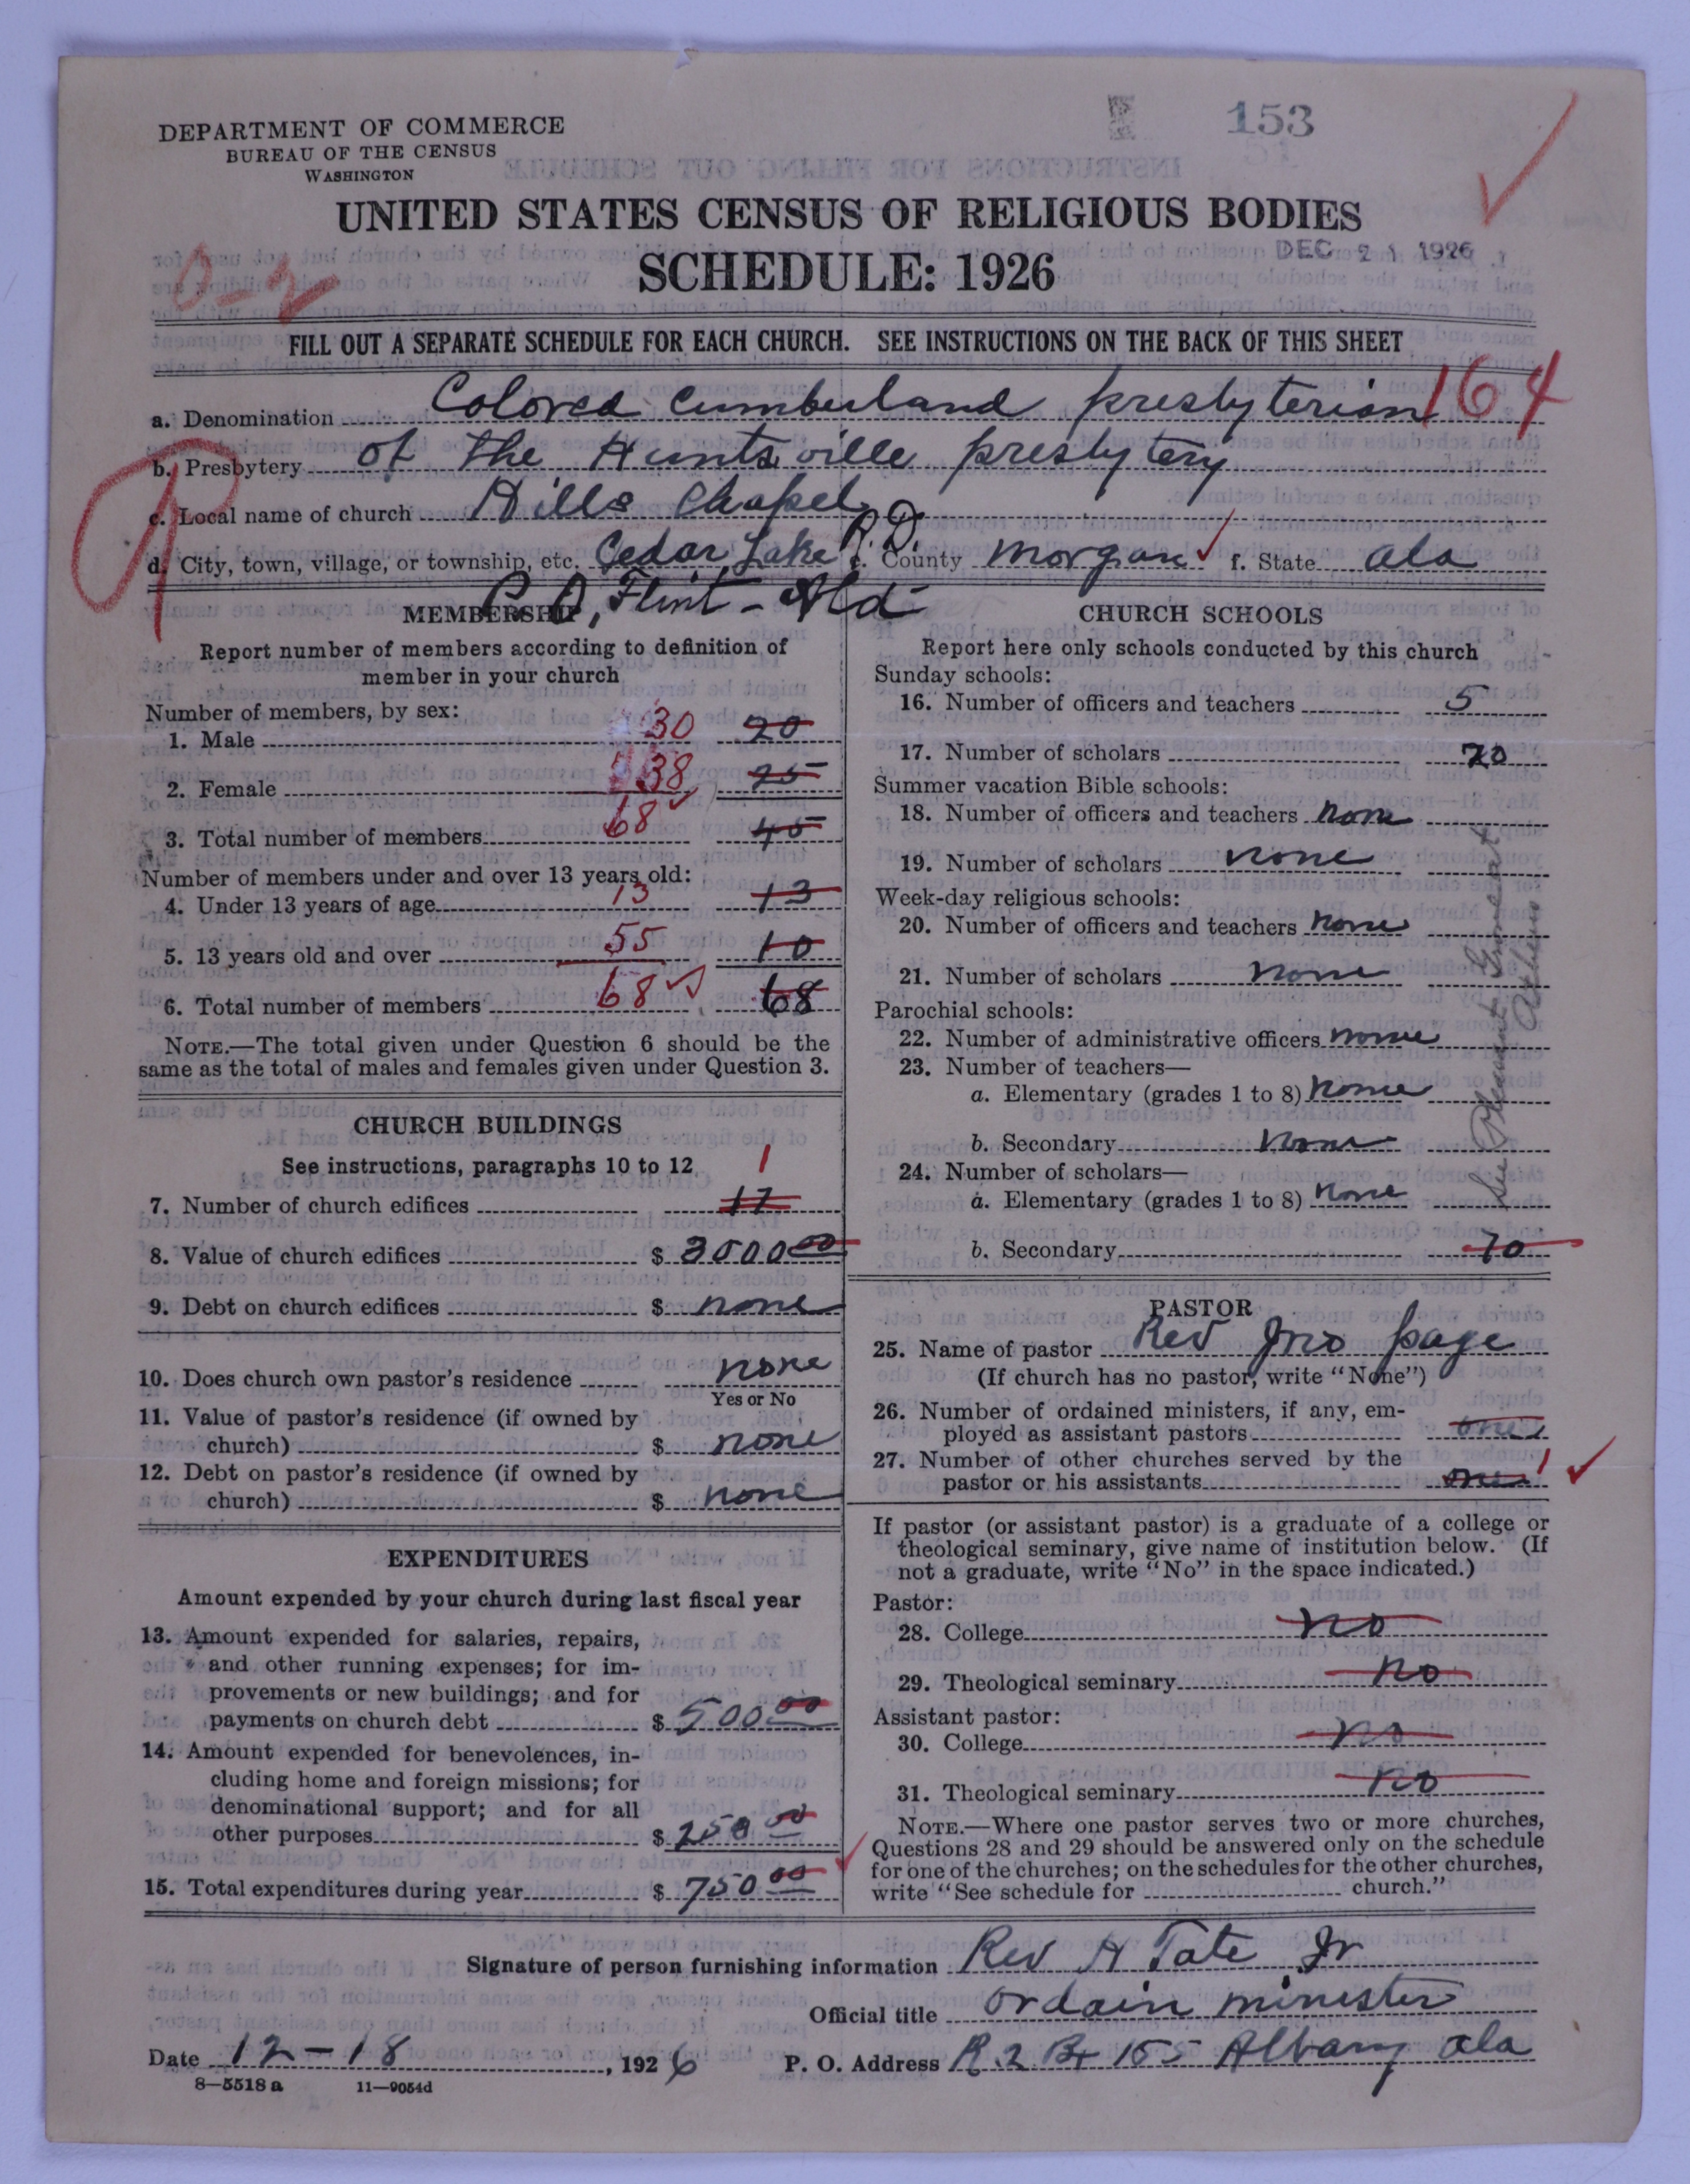 153
DEPARTMENT OF COMMERCE
BUREAU OF THE CENSUS
WASHINGTON
UNITED STATES CENSUS OF RELIGIOUS BODIES
DEC 21 1926
SCHEDULE: 1926
0-2
FILL OUT A SEPARATE SCHEDULE FOR EACH CHURCH. SEE INSTRUCTIONS ON THE BACK OF THIS SHEET
a. Denomination Colored Cumberland presbyterian 164
b. Presbytery of the Huntsville presbytery
c. Local name of church Hills Chapel
d. City, town, village, or township, etc. Cedar Lake R.D. e. County Morgan f. State Ala
P. O, Flint - Ala
MEMBERSHIP
Report number of members according to definition of
member in your church
Number of members, by sex:
1. Male 30 20
2. Female 38 25
3. Total number of members 68 45
Number of members under and over 13 years old:
4. Under 13 years of age 13 13
5. 13 years old and over 55 10
6. Total number of members 68 68
NOTE.—The total given under Question 6 should be the
same as the total of males and females given under Question 3.
CHURCH BUILDINGS
See instructions, paragraphs 10 to 12
1
7. Number of church edifices 17
8. Value of church edifices $ 3000 00
9. Debt on church edifices $ none
10. Does church own pastor's residence none
Yes or No
11. Value of pastor's residence (if owned by
church) $ none
12. Debt on pastor's residence (if owned by
church) $ none
EXPENDITURES
Amount expended by your church during last fiscal year
13. Amount expended for salaries, repairs,
and other running expenses; for im-
provements or new buildings; and for
payments on church debt $ 500 00
14. Amount expended for benevolences, in-
cluding home and foreign missions; for
denominational support; and for all
other purposes $ 250 00
15. Total expenditures during year $ 750 00
CHURCH SCHOOLS
Report here only schools conducted by this church
Sunday schools:
16. Number of officers and teachers 5
17. Number of scholars 70
Summer vacation Bible schools:
18. Number of officers and teachers none
19. Number of scholars none
Week-day religious schools:
20. Number of officers and teachers none
21. Number of scholars none
Parochial schools:
22. Number of administrative officers none
23. Number of teachers—
a. Elementary (grades 1 to 8) none
b. Secondary none
24. Number of scholars—
a. Elementary (grades 1 to 8) none
b. Secondary 70
See Pleasant
PASTOR
25. Name of pastor Rev Jno page
(If church has no pastor, write "None")
26. Number of ordained ministers, if any, em-
ployed as assistant pastors one
27. Number of other churches served by the
pastor or his assistants one 1
If pastor (or assistant pastor) is a graduate of a college or
theological seminary, give name of institution below. (If
not a graduate, write "No" in the space indicated.)
Pastor:
28. College no
29. Theological seminary no
Assistant pastor:
30. College no
31. Theological seminary no
NOTE.—Where one pastor serves two or more churches,
Questions 28 and 29 should be answered only on the schedule
for one of the churches; on the schedules for the other churches,
write "See schedule for church."
Signature of person furnishing information Rev H Tate Jr
Official title ordain minister
Date 12-18, 1926 P. O. Address R.2 Bx 155 Albany Ala
8—5518 a 11—9054d